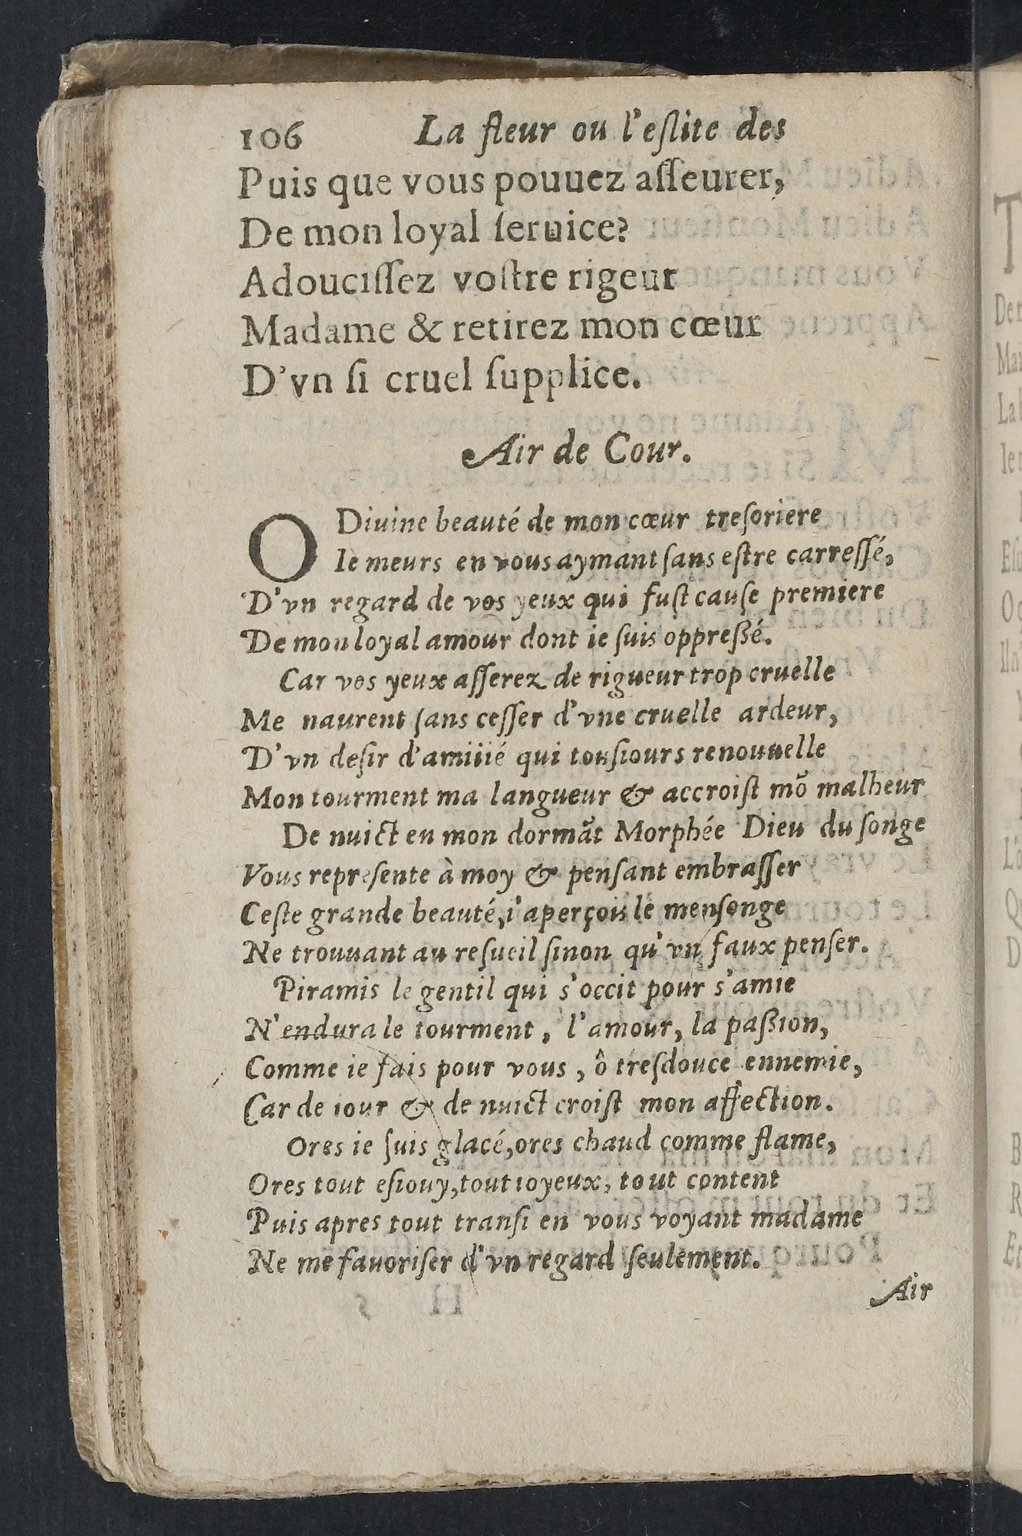 106 La fleur ou l'eſlite des
Puis que vous pouuez aſſeurer,
De mon loyal ſeruice?
Adouciſſez voſtre rigeur
Madame & retirez mon cœur
D'vn ſi cruel ſupplice.
Air de Cour.
O Diuine beauté de mon cœur treſoriere
Ie meurs en vous aymant ſans eſtre carreſſé,
D'vn regard de vos yeux qui fuſt cauſe premiere
De mon loyal amour dont ie ſuis oppreßé.
Car vos yeux aſſerez de rigueur trop cruelle
Me naurent ſans ceſſer d'vne cruelle ardeur,
D'vn deſir d'amitié qui touſiours renouuelle
Mon tourment ma langueur & accroiſt mõ malheur
De nuict en mon dormãt Morphée Dieu du ſonge
Vous repreſente à moy & penſant embraſſer
Ceſte grande beauté, i'aperçois le menſonge
Ne trouuant au reſueil ſinon qu'vn faux penſer.
Piramis le gentil qui s'occit pour s'amie
N'endura le tourment, l'amour, la paßion,
Comme ie fais pour vous, ô treſdouce ennemie,
Car de iour & de nuict croiſt mon affection.
Ores ie ſuis glacé, ores chaud comme flame,
Ores tout eſiouy, tout ioyeux, tout content
Puis apres tout tranſi en vous voyant madame
Ne me fauoriſer d'vn regard ſeulement.
Air